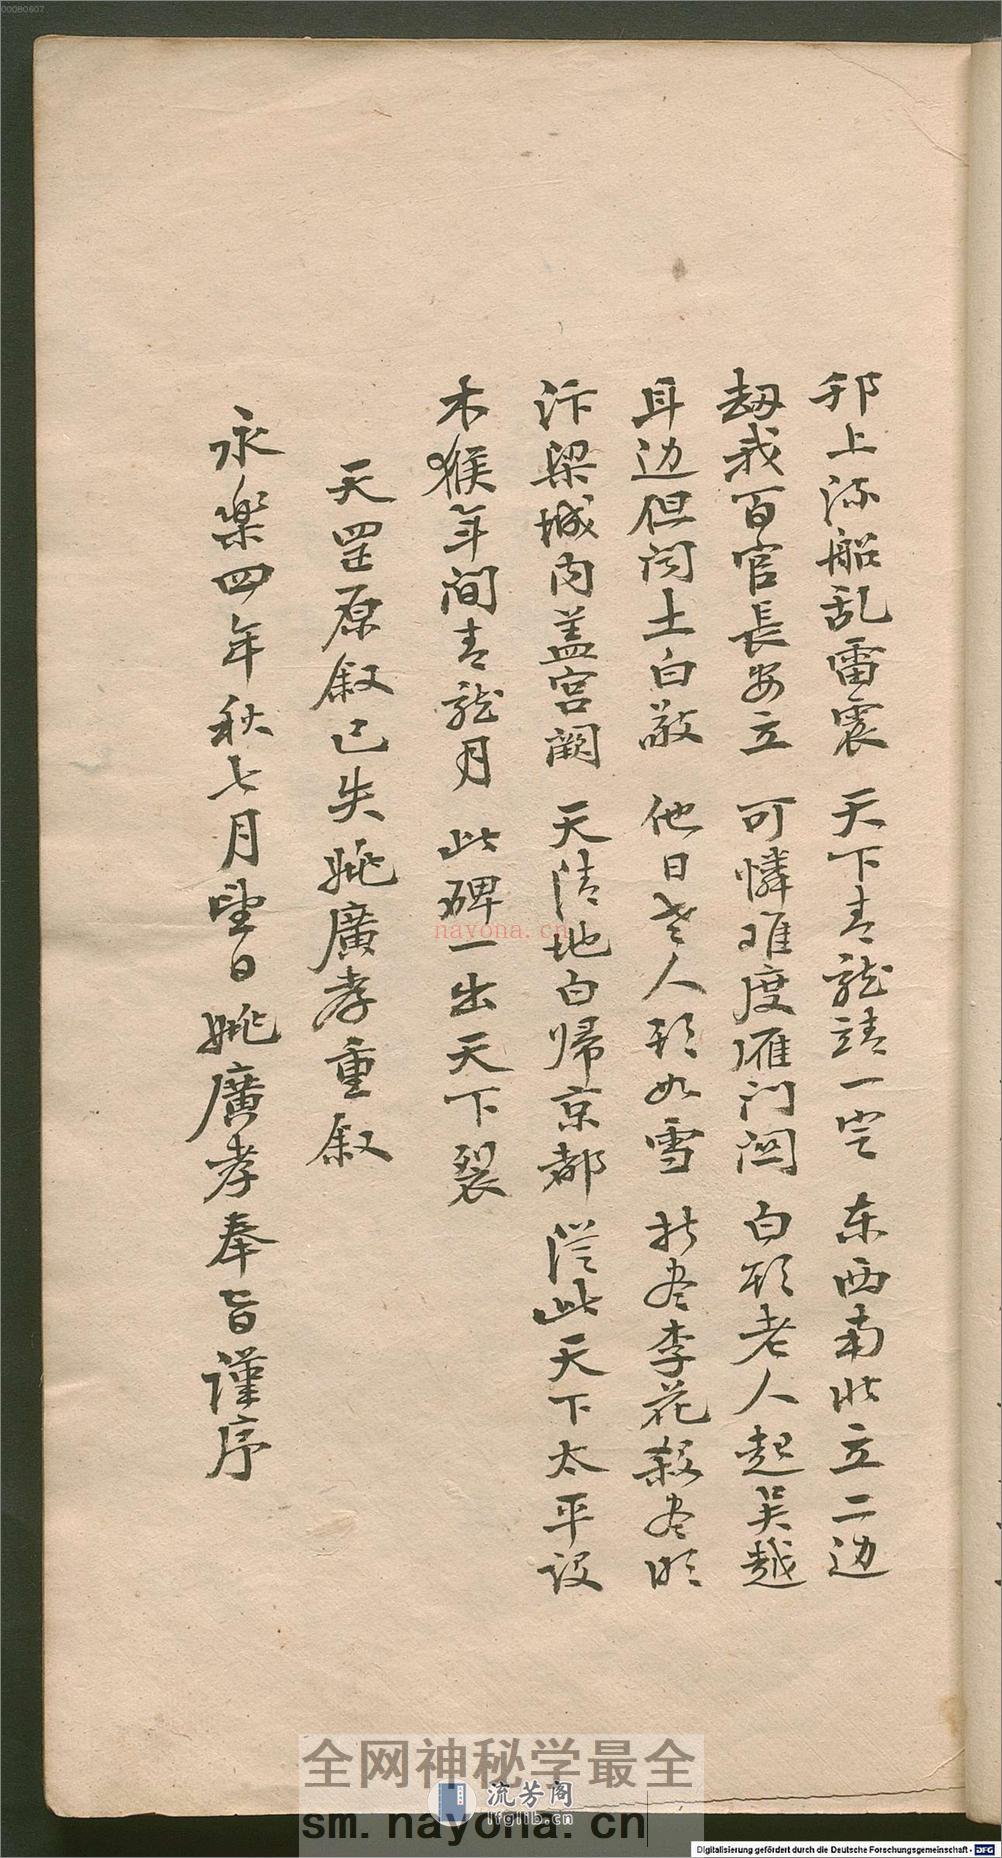 00080607
邗上流船乱雷震 天下青龍靖一空 东西南北立二边
劫我百官長安立 可憐难度雁门関 白头老人起吴越
耳边但闻土白敲 他日老人头如雪 折尽李花殺尽
汴梁城内盖宮阙 天清地白帰京都 從此天下太平设
木猴年间青龍月 此碑一出天下裂
天罡原叙已失姚廣孝重叙
永樂四年秋七月望日姚廣孝奉旨谨序
nayona.cn
全网神秘学最全
流芳阁
lfglib.cn
sm.nayona.cn
Digitalisierung gefördert durch die Deutsche Forschungsgemeinschaft - DFG